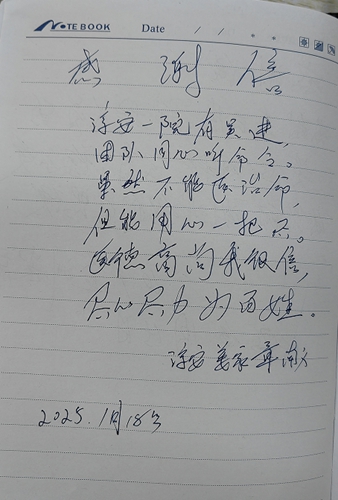 NOTEBOOK Date / /
感 谢 信
淳安一院有吴进,
团队同心听命令。
虽然不能医治命,
但能用心一把尽。
医德高尚我敬信,
尽心尽力为百姓。
淳安姜家章
2025.1月18号